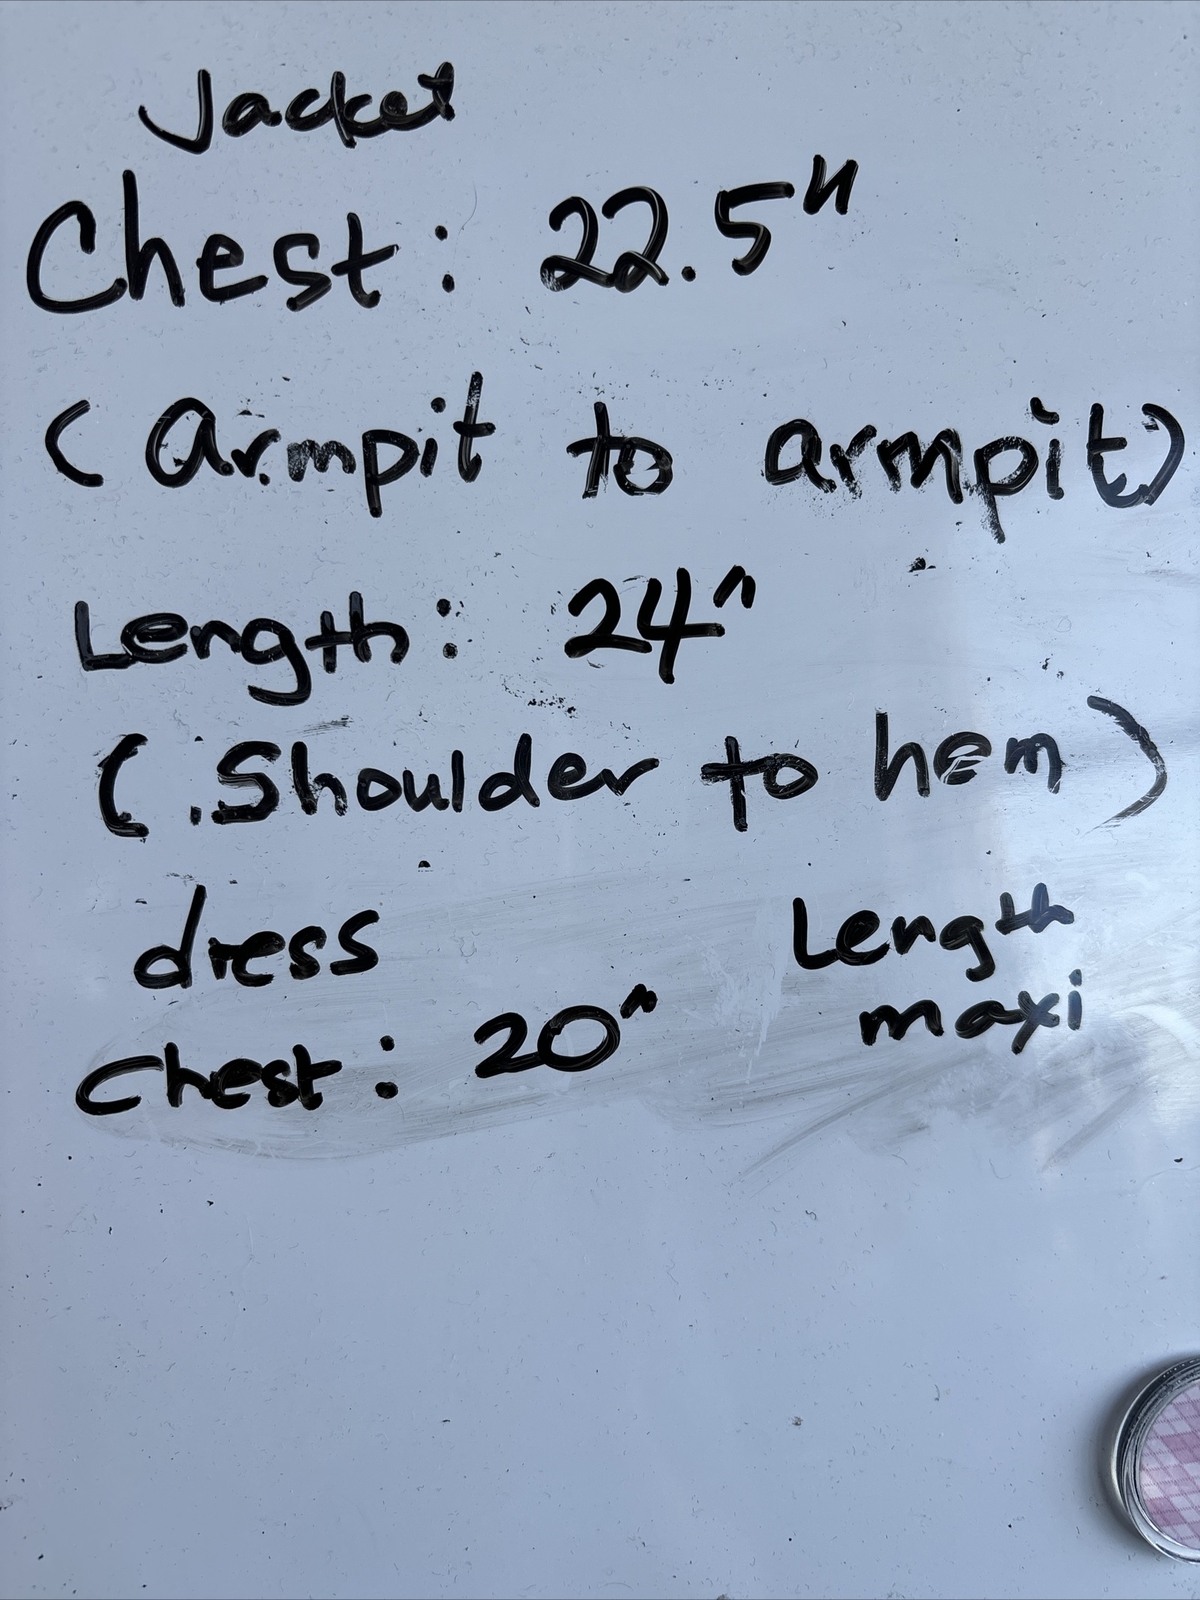 Jacket
Chest: 22.5"
(Armpit to armpit)
Length: 24"
(Shoulder to hem)
dress
Chest: 20"
Length
maxi